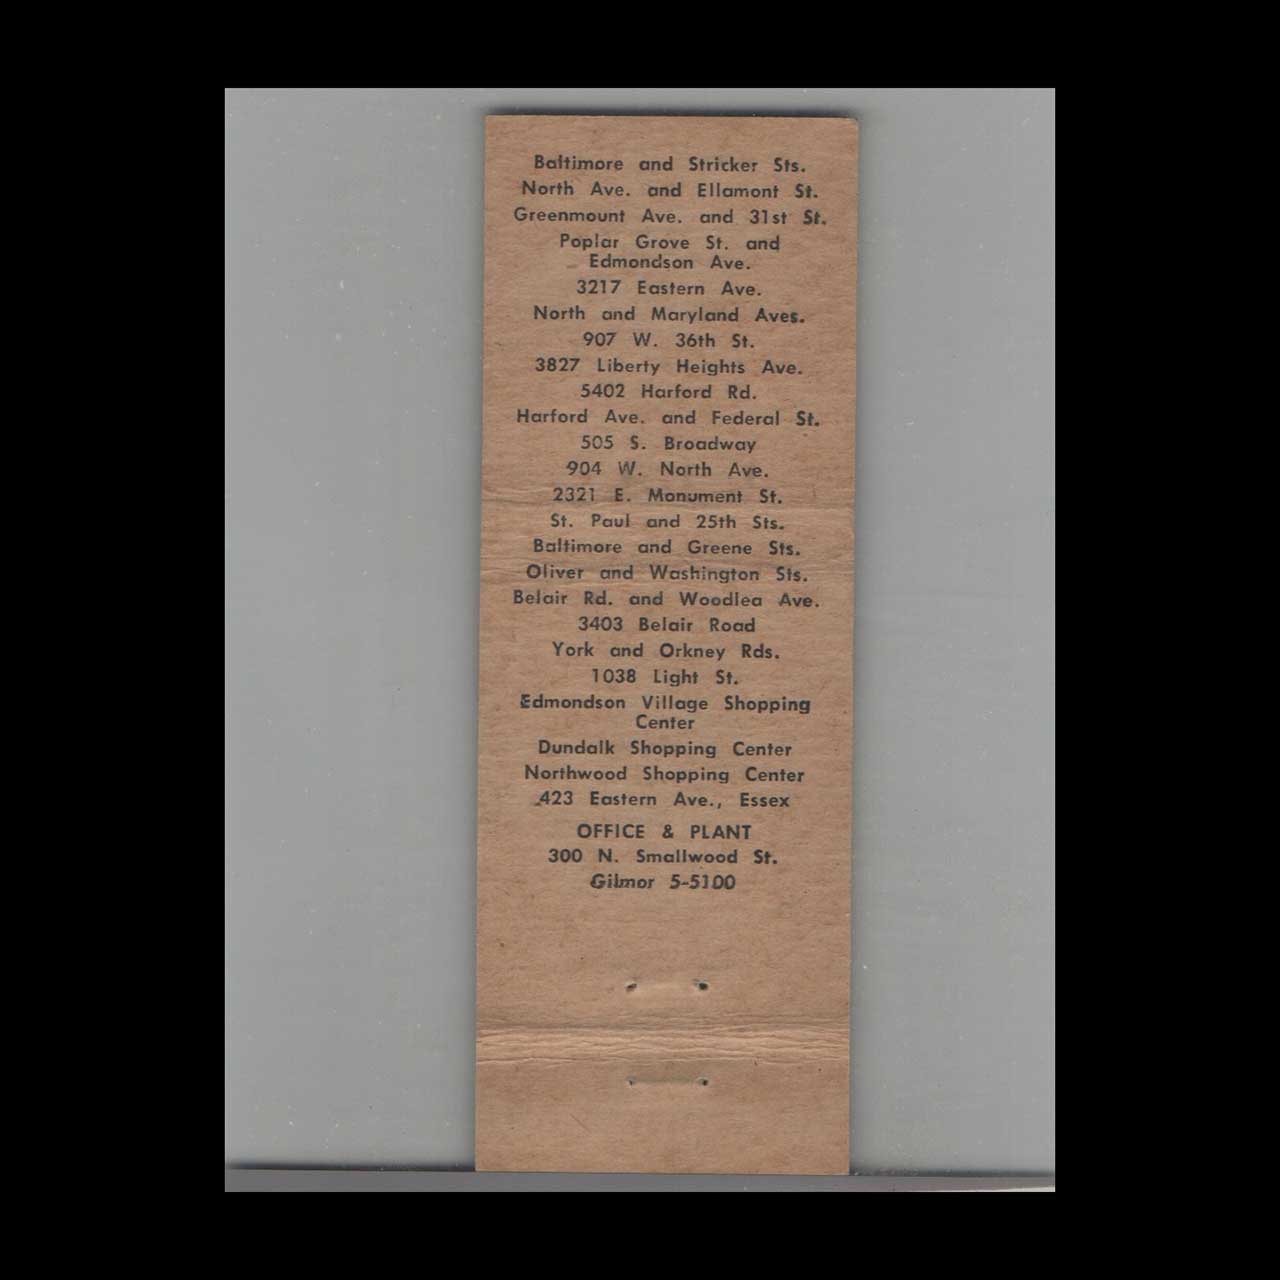 Baltimore and Stricker Sts.
North Ave. and Ellamont St.
Greenmount Ave. and 31st St.
Poplar Grove St. and
Edmondson Ave.
3217 Eastern Ave.
North and Maryland Aves.
907 W. 36th St.
3827 Liberty Heights Ave.
5402 Harford Rd.
Harford Ave. and Federal St.
505 S. Broadway
904 W. North Ave.
2321 E. Monument St.
St. Paul and 25th Sts.
Baltimore and Greene Sts.
Oliver and Washington Sts.
Belair Rd. and Woodlea Ave.
3403 Belair Road
York and Orkney Rds.
1038 Light St.
Edmondson Village Shopping
Center
Dundalk Shopping Center
Northwood Shopping Center
423 Eastern Ave., Essex
OFFICE & PLANT
300 N. Smallwood St.
Gilmor 5-5100